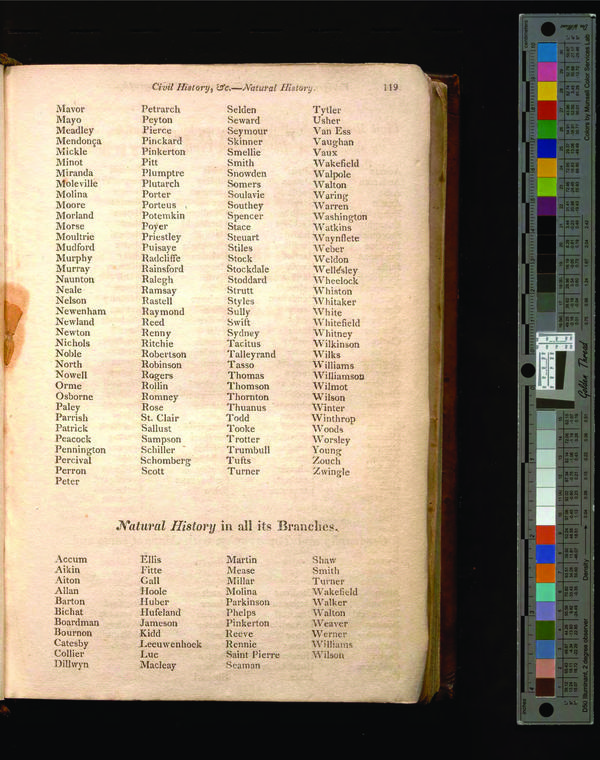 Civil History, &c.—Natural History. 119
Mavor Petrarch Selden Tytler
Mayo Peyton Seward Usher
Meadley Pierce Seymour Van Ess
Mendonça Pinckard Skinner Vaughan
Mickle Pinkerton Smellie Vaux
Minot Pitt Smith Wakefield
Miranda Plumptre Snowden Walpole
Moleville Plutarch Somers Walton
Molina Porter Soulavie Waring
Moore Porteus Southey Warren
Morland Potemkin Spencer Washington
Morse Poyer Stace Watkins
Moultrie Priestley Steuart Waynflete
Mudford Puisaye Stiles Weber
Murphy Radcliffe Stock Weldon
Murray Rainsford Stockdale Wellesley
Naunton Ralegh Stoddard Wheelock
Neale Ramsay Strutt Whiston
Nelson Rastell Styles Whitaker
Newenham Raymond Sully White
Newland Reed Swift Whitefield
Newton Renny Sydney Whitney
Nichols Ritchie Tacitus Wilkinson
Noble Robertson Talleyrand Wilks
North Robinson Tasso Williams
Nowell Rogers Thomas Williamson
Orme Rollin Thomson Wilmot
Osborne Romney Thornton Wilson
Paley Rose Thuanus Winter
Parrish St. Clair Todd Winthrop
Patrick Sallust Tooke Woods
Peacock Sampson Trotter Worsley
Pennington Schiller Trumbull Young
Percival Schomberg Tufts Zouch
Perron Scott Turner Zwingle
Peter
Natural History in all its Branches.
Accum Ellis Martin Shaw
Aikin Fitte Mease Smith
Aiton Gall Millar Turner
Allan Hoole Molina Wakefield
Barton Huber Parkinson Walker
Bichat Hufeland Phelps Walton
Boardman Jameson Pinkerton Weaver
Bournon Kidd Reeve Werner
Catesby Leeuwenhoek Rennie Williams
Collier Luc Saint Pierre Wilson
Dillwyn Macleay Seaman
Colors by Munsell Color Services Lab
Golden Thread
Density
D50 Illuminant, 2 degree observer